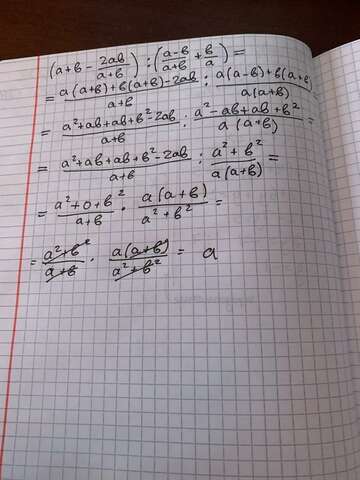 (a+b - 2ab/(a+b)) : ((a-b)/(a+b) + b/a) =
= (a(a+b)+b(a+b)-2ab)/(a+b) : (a(a-b)+b(a+b))/(a(a+b))
= (a²+ab+ab+b²-2ab)/(a+b) : (a²-ab+ab+b²)/(a(a+b)) =
= (a²+ab+ab+b²-2ab)/(a+b) : (a²+b²)/(a(a+b)) =
= (a²+0+b²)/(a+b) · (a(a+b))/(a²+b²) =
= (a²+b²)/(a+b) · (a(a+b))/(a²+b²) = a